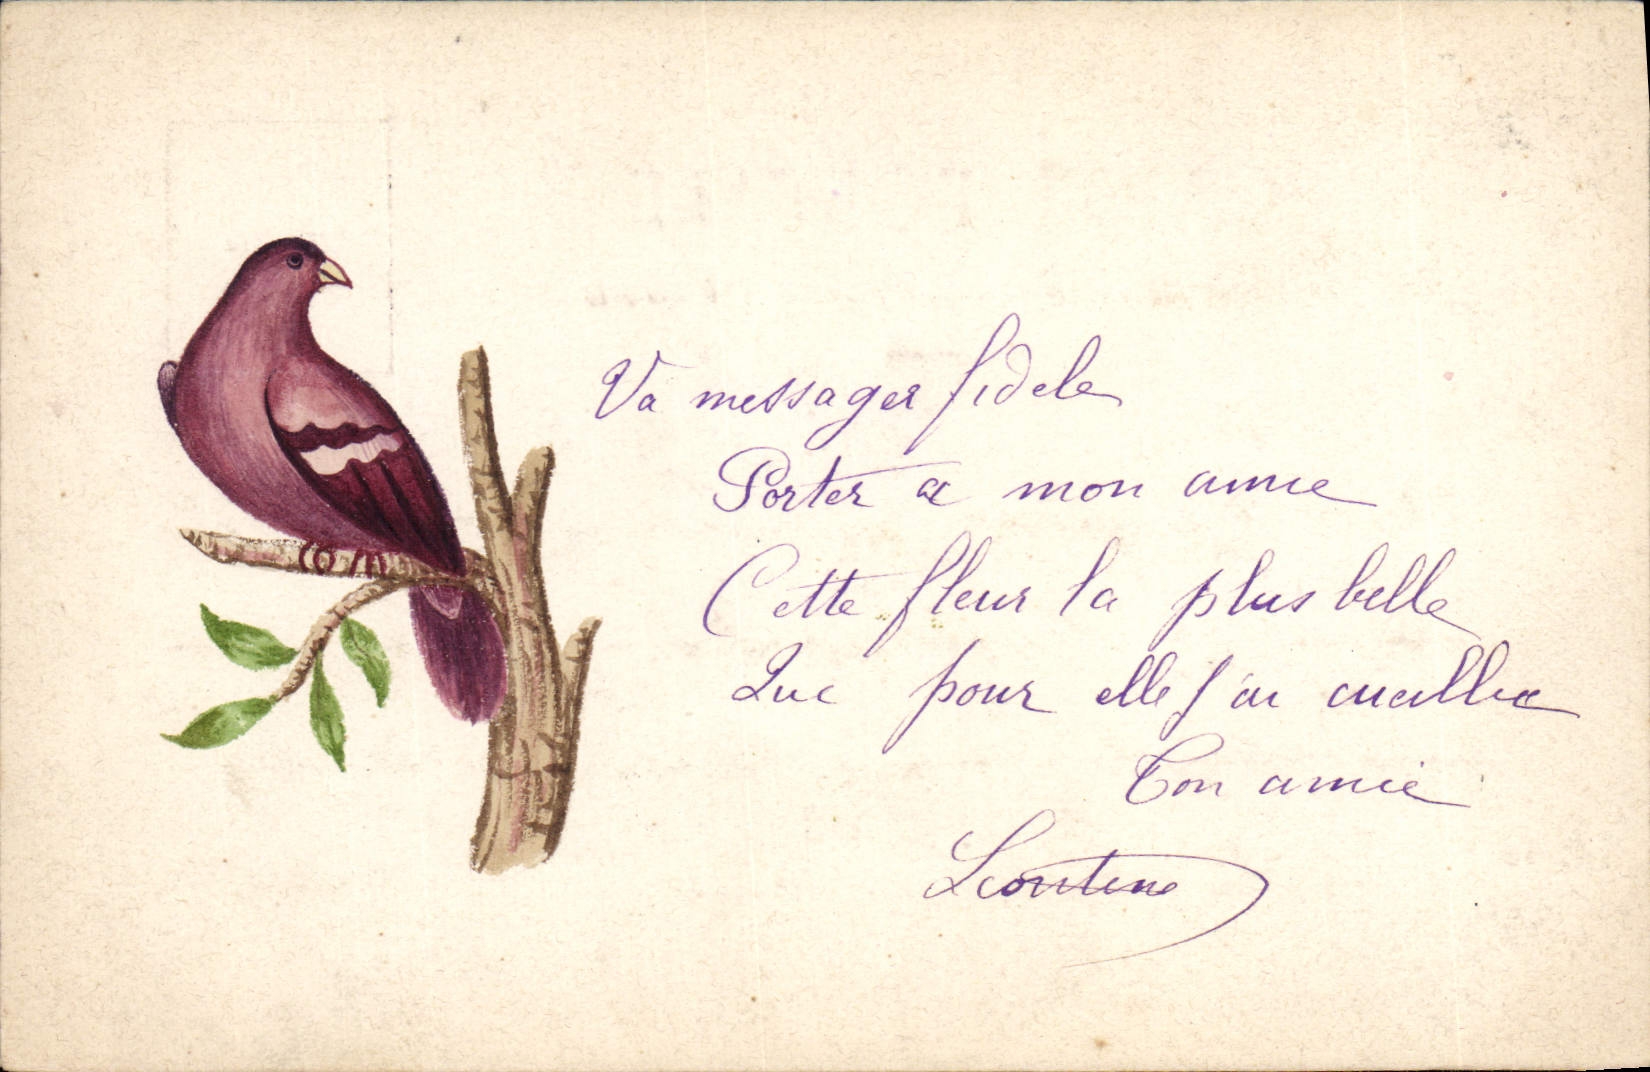 Va messager fidele
Porter a mon amie
Cette fleur la plus belle
Que pour elle j'ai cueillie
Ton amie
Léontine